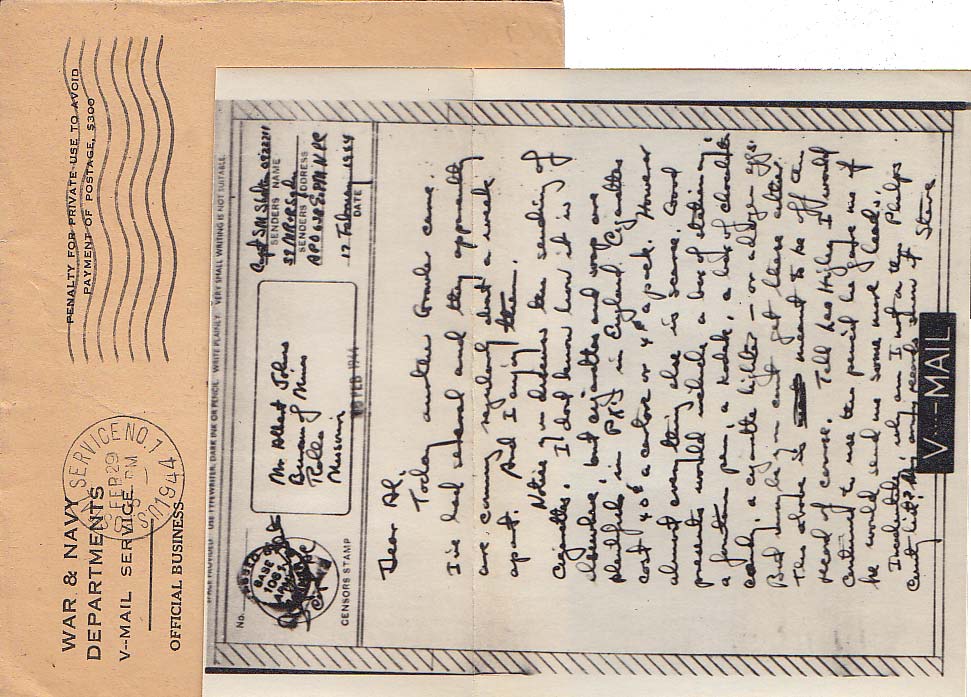 WAR & NAVY
DEPARTMENTS
V--MAIL SERVICE
OFFICIAL BUSINESS
PENALTY FOR PRIVATE USE TO AVOID
PAYMENT OF POSTAGE, $300
SERVICE NO. 1
FEB 29
PM
1944
USE TYPEWRITER, DARK INK OR PENCIL. WRITE PLAINLY. VERY SMALL WRITING IS NOT SUITABLE.
No.
PASSED
BASE
CENSORS STAMP
Mr Albert Johns
Bureau of Mines
Rolla
Missouri
FEB 1944
Capt SM
SENDERS NAME
SENDERS ADDRESS
APO
12 February 1944
DATE
Dear Al,
Today another Growler came.
I've had several and they apparently
are coming regularly about a week
apart. And I enjoy them.
Notice you discuss the sending of
cigarettes. I don't know how it is
elsewhere, but cigarettes and soap are
plentiful in PX's in England. Cigarettes
cost 40¢ a carton or 4¢ a pack. However
almost everything else is scarce. Good
presents would include a box of stationery,
a fountain pen, a kodak, a lot of chocolate
candy, a cigarette lighter – or a dozen eggs.
But maybe you can't get these either.
The above is meant to be off the
record of course. Tell Leo Higley I would
continue to use the pencil he gave me if
he would send me some more leads.
Incidentally why am I not on the Phelps
County list? My army records show it
Steve
V---MAIL